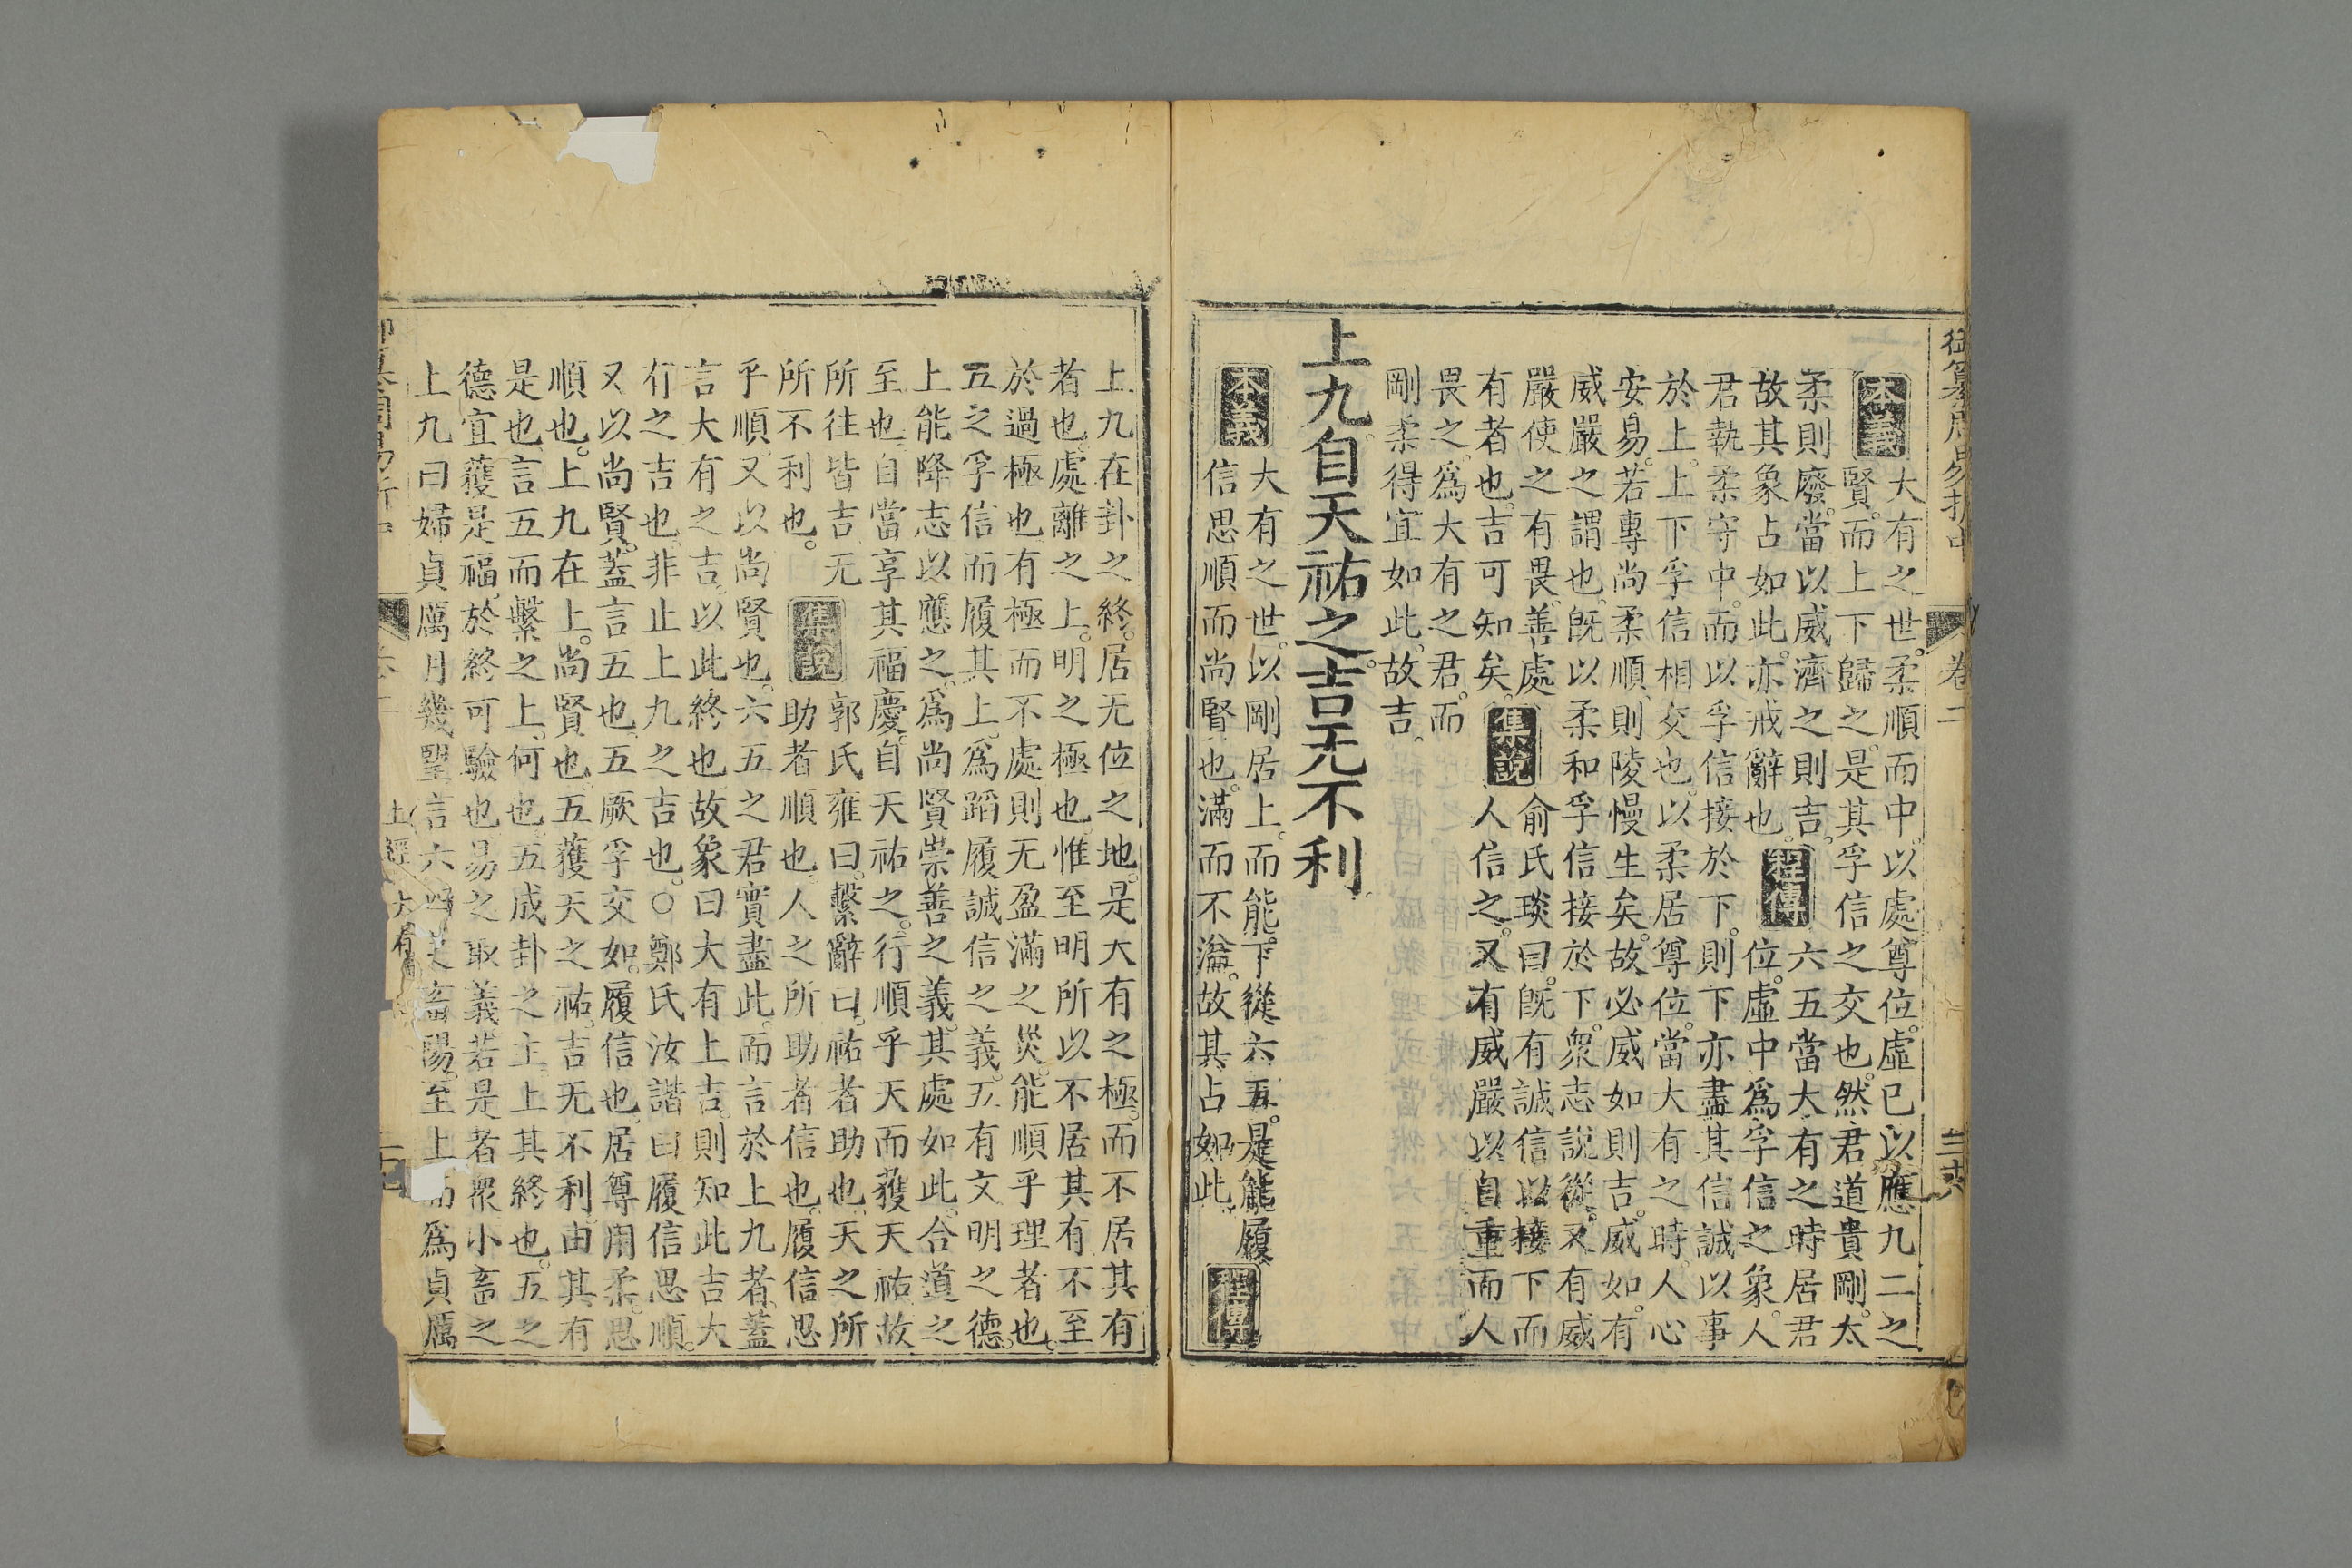 御纂周易折中 卷二
本義
大有之世。柔順而中。以處尊位。虛己以應九二之
賢。而上下歸之。是其孚信之交也。然君道貴剛。太
柔則廢。當以威濟之則吉。
故其象占如此。亦戒辭也。
程傳
六五當大有之時居君
位。虛中爲孚信之象。人
君執柔守中。而以孚信接於下。則下亦盡其信誠以事
於上。上下孚信相交也。以柔居尊位。當大有之時。人心
安易。若專尚柔順。則陵慢生矣。故必威如則吉。威如。有
威嚴之謂也。既以柔和孚信接於下。衆志說從。又有威
嚴使之有畏。善處
有者也。吉可知矣。
集說
俞氏琰曰。既有誠信以接下而
人信之。又有威嚴以自重而人
畏之。爲大有之君。而
剛柔得宜如此。故吉。
上九。自天祐之。吉无不利。
本義
大有之世。以剛居上。而能下從六五。是能履
信思順而尚賢也。滿而不溢。故其占如此。
程傳
上九在卦之終。居无位之地。是大有之極。而不居其有
者也。處離之上。明之極也。惟至明所以不居其有。不至
於過極也。有極而不處。則无盈滿之災。能順乎理者也。
五之孚信。而履其上。爲蹈履誠信之義。五有文明之德。
上能降志以應之。爲尚賢崇善之義。其處如此。合道之
至也。自當享其福慶。自天祐之。行順乎天而獲天祐。故
所往皆吉。无
所不利也。
集說
郭氏雍曰。繫辭曰。祐者助也。天之所
助者順也。人之所助者信也。履信思
乎順。又以尚賢也。六五之君實盡此。而言於上九者。蓋
言大有之吉。以此終也。故象曰大有上吉。則知此吉大
有之吉也。非止上九之吉也。○鄭氏汝諧曰。履信思順。
又以尚賢。蓋言五也。五厥孚交如。履信也。居尊用柔。思
順也。上九在上。尚賢也。五獲天之祐。吉无不利。由其有
是也。言五而繫之上。何也。五成卦之主。上其終也。五之
德宜獲是福。於終可驗也。易之取義若是者衆。小畜之
上九曰婦貞厲月幾望。言六四之畜陽。至上而爲貞厲
上經 大有